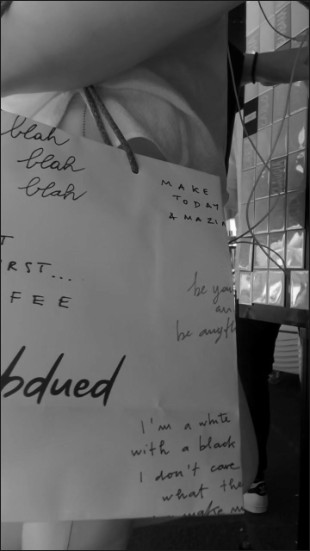 blah
blah
blah
MAKE
TODAY
RST...
FEE
be you
be
bdued
I'm a white
with a black
I don't care
what the